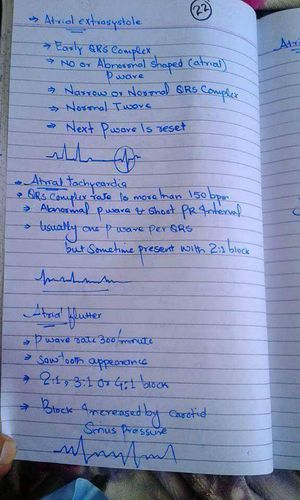 22
→ Atrial extrasystole
→ Early QRS Complex
→ No or Abnormal shaped (atrial)
P wave
→ Narrow or Normal QRS Complex
→ Normal T wave
→ Next P wave Is reset
→ Atrial tachycardia
→ QRS Complex rate is more than 150 bpm
→ Abnormal p wave & short PR Interval
→ Usually one P wave Per QRS
but Sometime present with 2:1 block
Atrial flutter
→ P wave rate 300/minute
→ Saw tooth appearance
→ 2:1, 3:1 or 4:1 block
→ Block Increased by carotid
Sinus Pressure
Atri